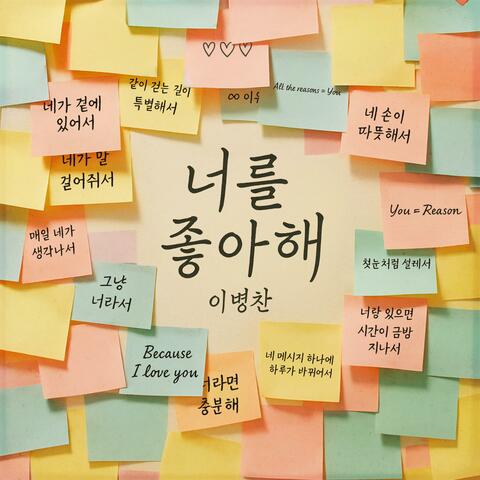 같이 걷는 길이
특별해서
∞ 이유
All the reasons = You
네가 곁에
있어서
네 손이
따뜻해서
네가 말
걸어줘서
너를
좋아해
이병찬
You = Reason
매일 네가
생각나서
첫눈처럼 설레서
그냥
너라서
너랑 있으면
시간이 금방
지나서
Because
I love you
네 메시지 하나에
하루가 바뀌어서
너라면
충분해